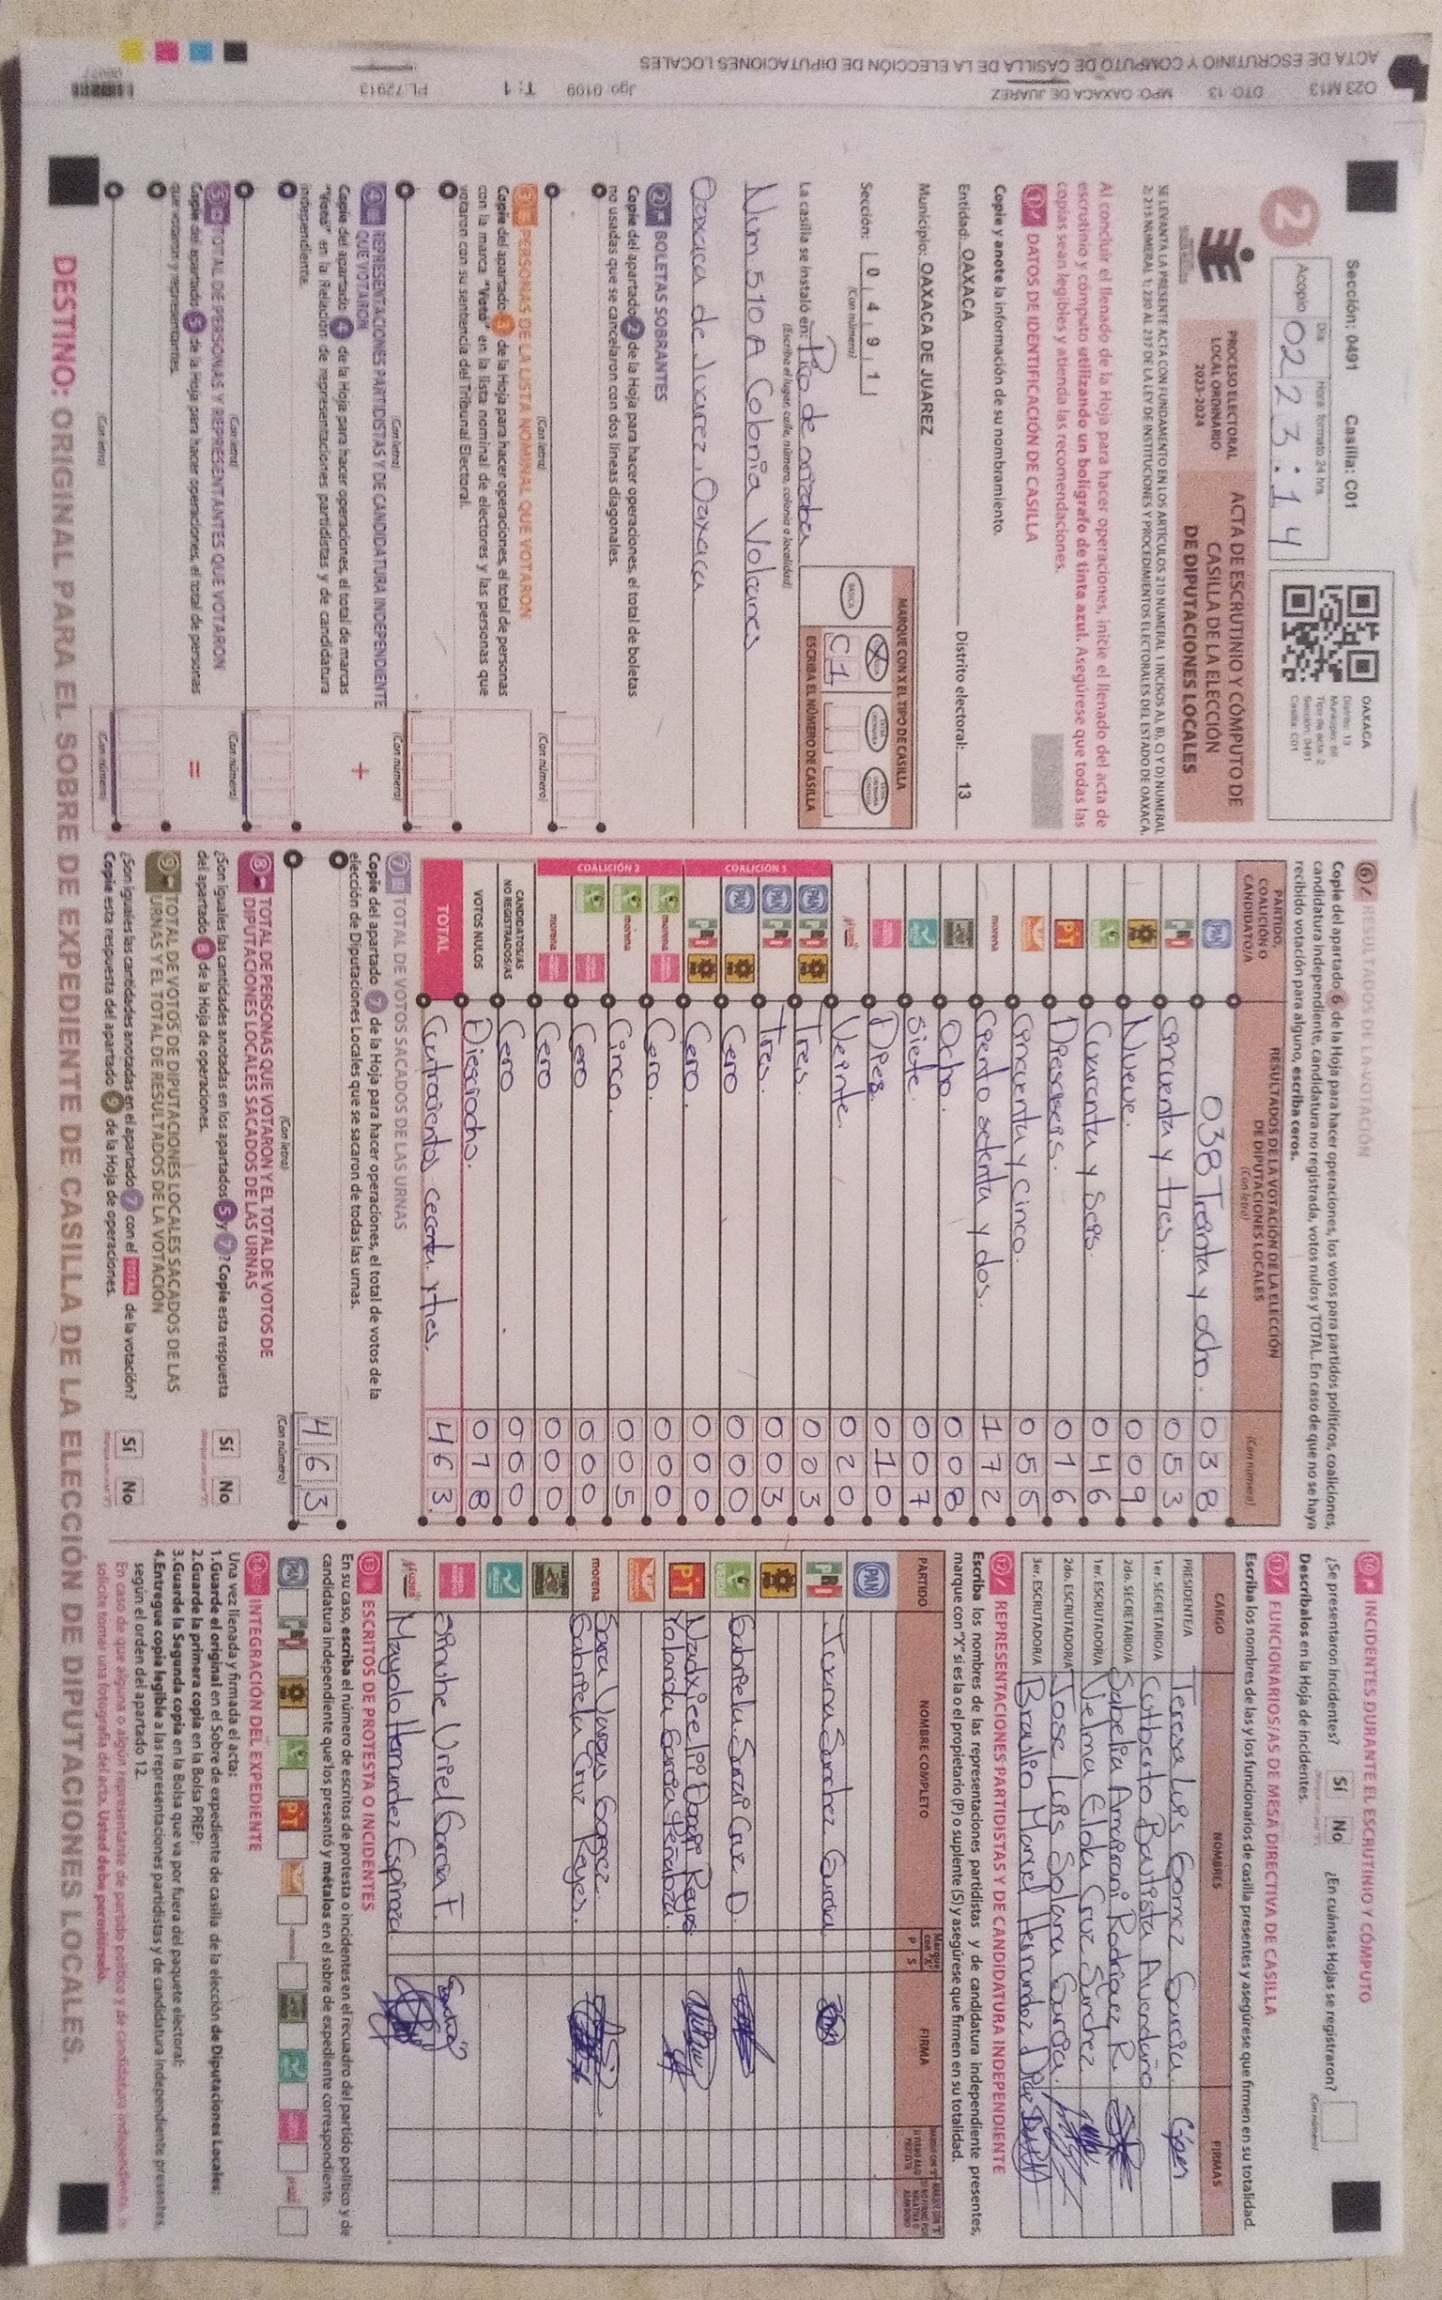 Sección: 0491 Casilla: C01
2
Día Hora formato 24 hrs.
Acopio 02 23:14
OAXACA
Distrito: 13
Tipo de acta: 2
Sección: 0491
Casilla: C01
PROCESO ELECTORAL
LOCAL ORDINARIO
2023-2024
ACTA DE ESCRUTINIO Y CÓMPUTO DE
CASILLA DE LA ELECCIÓN
DE DIPUTACIONES LOCALES
SE LEVANTA LA PRESENTE ACTA CON FUNDAMENTO EN LOS ARTÍCULOS 210 NUMERAL 1 INCISOS A), B), C) Y D) NUMERAL
2; 215 NUMERAL 1; 230 AL 237 DE LA LEY DE INSTITUCIONES Y PROCEDIMIENTOS ELECTORALES DEL ESTADO DE OAXACA.
Al concluir el llenado de la Hoja para hacer operaciones, inicie el llenado del acta de
escrutinio y cómputo utilizando un bolígrafo de tinta azul. Asegúrese que todas las
copias sean legibles y atienda las recomendaciones.
1 DATOS DE IDENTIFICACIÓN DE CASILLA
Copie y anote la información de su nombramiento.
Entidad: OAXACA Distrito electoral: 13
Municipio: OAXACA DE JUAREZ
Sección: 0 4 9 1
(Con número)
MARQUE CON X EL TIPO DE CASILLA
BÁSICA
C 1
ESCRIBA EL NÚMERO DE CASILLA
La casilla se instaló en: Pico de orizaba
(Escriba el lugar, calle, número, colonia o localidad)
Num. 510 A Colonia Volcanes
Oaxaca de Juarez, Oaxaca
2 BOLETAS SOBRANTES
Copie del apartado 2 de la Hoja para hacer operaciones, el total de boletas
no usadas que se cancelaron con dos líneas diagonales.
(Con letra) (Con número)
3 PERSONAS DE LA LISTA NOMINAL QUE VOTARON
Copie del apartado 3 de la Hoja para hacer operaciones, el total de personas
con la marca "Votó" en la lista nominal de electores y las personas que
votaron con su sentencia del Tribunal Electoral.
(Con letra) (Con número)
4 REPRESENTACIONES PARTIDISTAS Y DE CANDIDATURA INDEPENDIENTE
QUE VOTARON
Copie del apartado 4 de la Hoja para hacer operaciones, el total de marcas
"Votó" en la Relación de representaciones partidistas y de candidatura
independiente.
+
(Con letra) (Con número)
5 TOTAL DE PERSONAS Y REPRESENTANTES QUE VOTARON
Copie del apartado 5 de la Hoja para hacer operaciones, el total de personas
que votaron y representantes.
=
(Con letra) (Con número)
6 RESULTADOS DE LA VOTACIÓN
Copie del apartado 6 de la Hoja para hacer operaciones, los votos para partidos políticos, coaliciones,
candidatura independiente, candidatura no registrada, votos nulos y TOTAL. En caso de que no se haya
recibido votación para alguno, escriba ceros.
PARTIDO,
COALICIÓN O
CANDIDATO/A
RESULTADOS DE LA VOTACIÓN DE LA ELECCIÓN
DE DIPUTACIONES LOCALES
(Con letra) (Con número)
PAN 038 Treinta y ocho. 038
PRI cincuenta y tres. 053
Nueve. 009
Cuarenta y seis. 046
PT Dieseseis. 016
cincuenta y cinco. 055
morena ciento setenta y dos. 172
Ocho. 008
siete. 007
Diez. 010
Veinte. 020
COALICIÓN 1
PAN PRI Tres. 003
PAN PRI Tres. 003
PAN Cero 000
PRI Cero. 000
COALICIÓN 2
morena Cero. 000
morena Cinco. 005
Cero 000
morena Cero 000
CANDIDATOS/AS
NO REGISTRADOS/AS Cero 000
VOTOS NULOS Diesciocho. 018
TOTAL 463.
7 TOTAL DE VOTOS SACADOS DE LAS URNAS
Copie del apartado 7 de la Hoja para hacer operaciones, el total de votos de la
elección de Diputaciones Locales que se sacaron de todas las urnas.
463
(Con letra) (Con número)
8 TOTAL DE PERSONAS QUE VOTARON Y EL TOTAL DE VOTOS DE
DIPUTACIONES LOCALES SACADOS DE LAS URNAS
¿Son iguales las cantidades anotadas en los apartados 5 y 7? Copie esta respuesta
del apartado 8 de la Hoja de operaciones.
Sí No
9 TOTAL DE VOTOS DE DIPUTACIONES LOCALES SACADOS DE LAS
URNAS Y EL TOTAL DE RESULTADOS DE LA VOTACIÓN
¿Son iguales las cantidades anotadas en el apartado 7 con el TOTAL de la votación?
Copie esta respuesta del apartado 9 de la Hoja de operaciones.
Sí No
10 INCIDENTES DURANTE EL ESCRUTINIO Y CÓMPUTO
¿Se presentaron incidentes? Sí No ¿En cuántas Hojas se registraron?
Descríbalos en la Hoja de incidentes.
11 FUNCIONARIOS/AS DE MESA DIRECTIVA DE CASILLA
Escriba los nombres de las y los funcionarios de casilla presentes y asegúrese que firmen en su totalidad.
CARGO NOMBRES FIRMAS
PRESIDENTE/A Teresa Luis Gomez Garcia.
1er SECRETARIO/A Cutberto Bautista Avendaño
2do. SECRETARIO/A Rodriguez R.
1er. ESCRUTADOR/A Vielma Elda Cruz Sanchez
2do. ESCRUTADOR/A Jose Luis Solana Garcia.
3er. ESCRUTADOR/A Braulio Manuel Hernandez Diaz
12 REPRESENTACIONES PARTIDISTAS Y DE CANDIDATURA INDEPENDIENTE
Escriba los nombres de las representaciones partidistas y de candidatura independiente presentes,
marque con "X" si es la o el propietario (P) o suplente (S) y asegúrese que firmen en su totalidad.
PARTIDO NOMBRE COMPLETO P S FIRMA
PAN
PRI Sanchez Garcia
Gabriela Cruz D.
PT Reyes
Yolanda Garcia Peñaloza.
morena Sara Vargas
Gabriela Cruz Reyes.
Uriel Garcia F.
Mayolo Hernandez Espinoza
13 ESCRITOS DE PROTESTA O INCIDENTES
En su caso, escriba el número de escritos de protesta o incidentes en el recuadro del partido político y de
candidatura independiente que los presentó y métalos en el sobre de expediente correspondiente.
14 INTEGRACIÓN DEL EXPEDIENTE
Una vez llenada y firmada el acta:
1.Guarde el original en el Sobre de expediente de casilla de la elección de Diputaciones Locales;
2.Guarde la primera copia en la Bolsa PREP;
3.Guarde la Segunda copia en la Bolsa que va por fuera del paquete electoral;
4.Entregue copia legible a las representaciones partidistas y de candidatura independiente presentes,
según el orden del apartado 12.
En caso de que alguna o algún representante de partido político y de candidatura independiente, le
solicite tomar una fotografía del acta. Usted debe permitírselo.
DESTINO: ORIGINAL PARA EL SOBRE DE EXPEDIENTE DE CASILLA DE LA ELECCIÓN DE DIPUTACIONES LOCALES.
ACTA DE ESCRUTINIO Y CÓMPUTO DE CASILLA DE LA ELECCIÓN DE DIPUTACIONES LOCALES
023 M13 DTO: 13 MPO: OAXACA DE JUAREZ Jgo: 0109 T: 1 PL: 72913